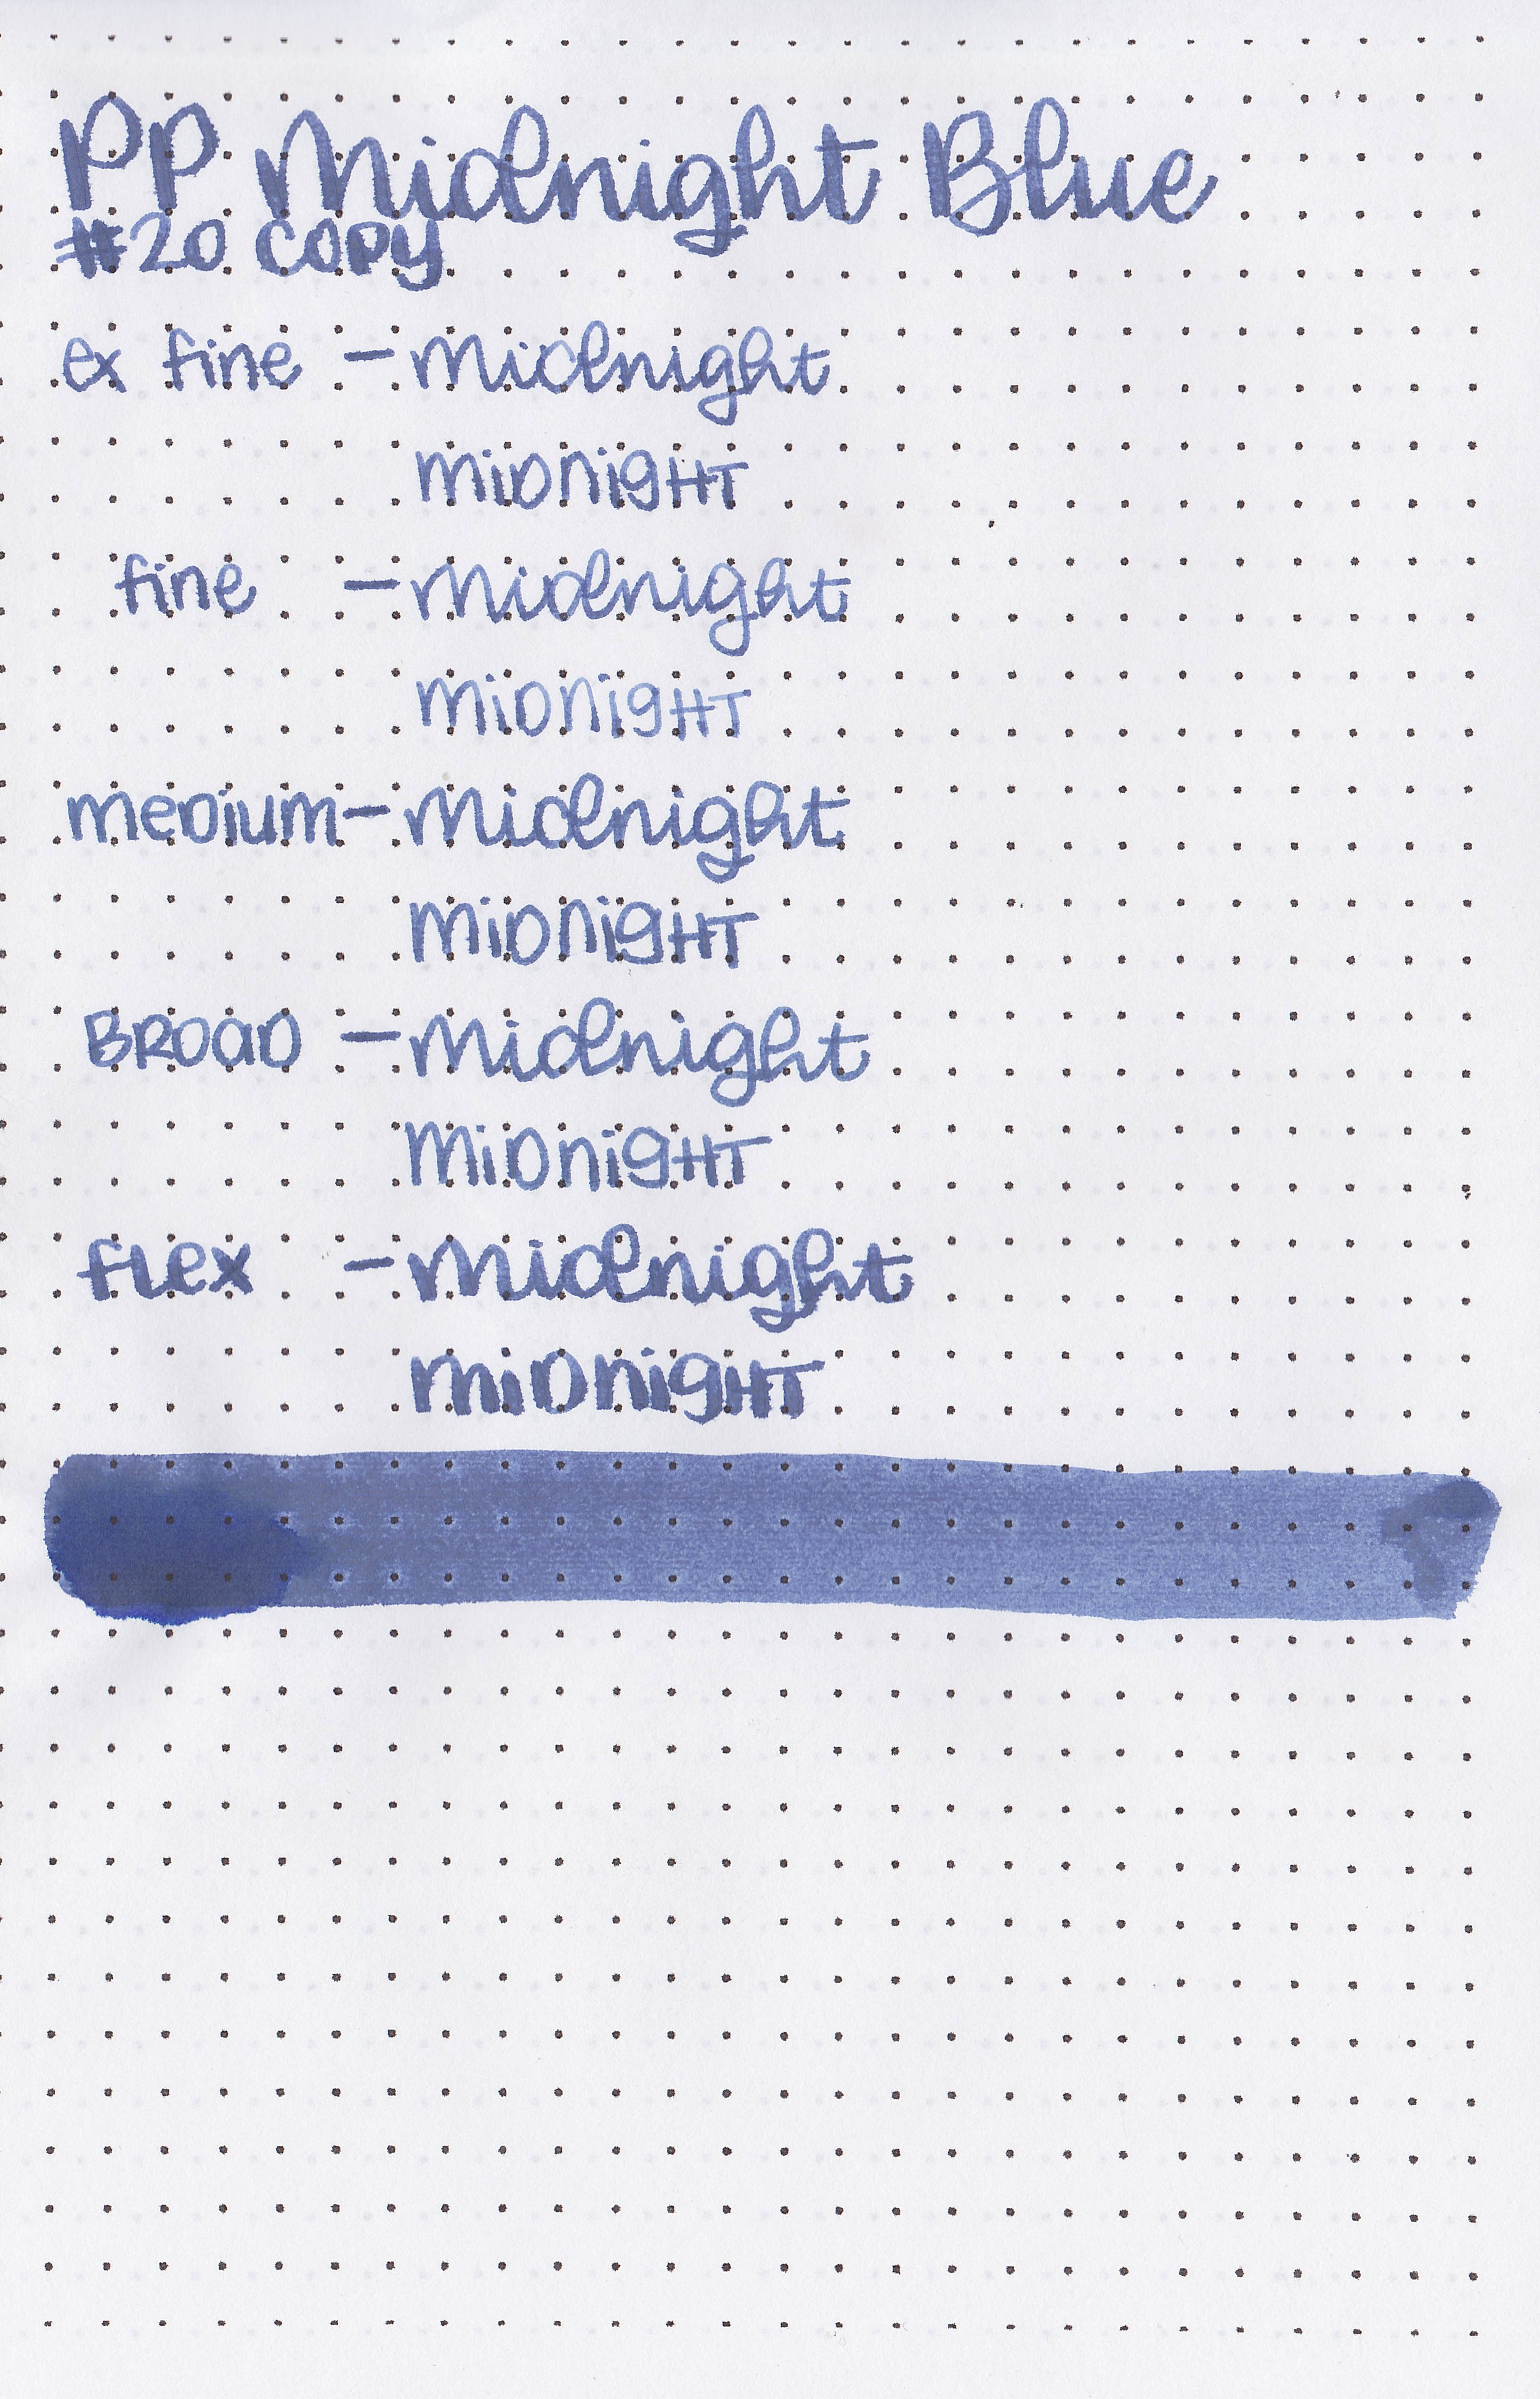 PP Midnight Blue
#20 COPY
ex fine - Midnight
MiDniGHT
fine - Midnight
MiDniGHT
meDium - Midnight
MiDniGHT
BROaD - Midnight
MiDniGHT
flex - Midnight
MiDniGHT